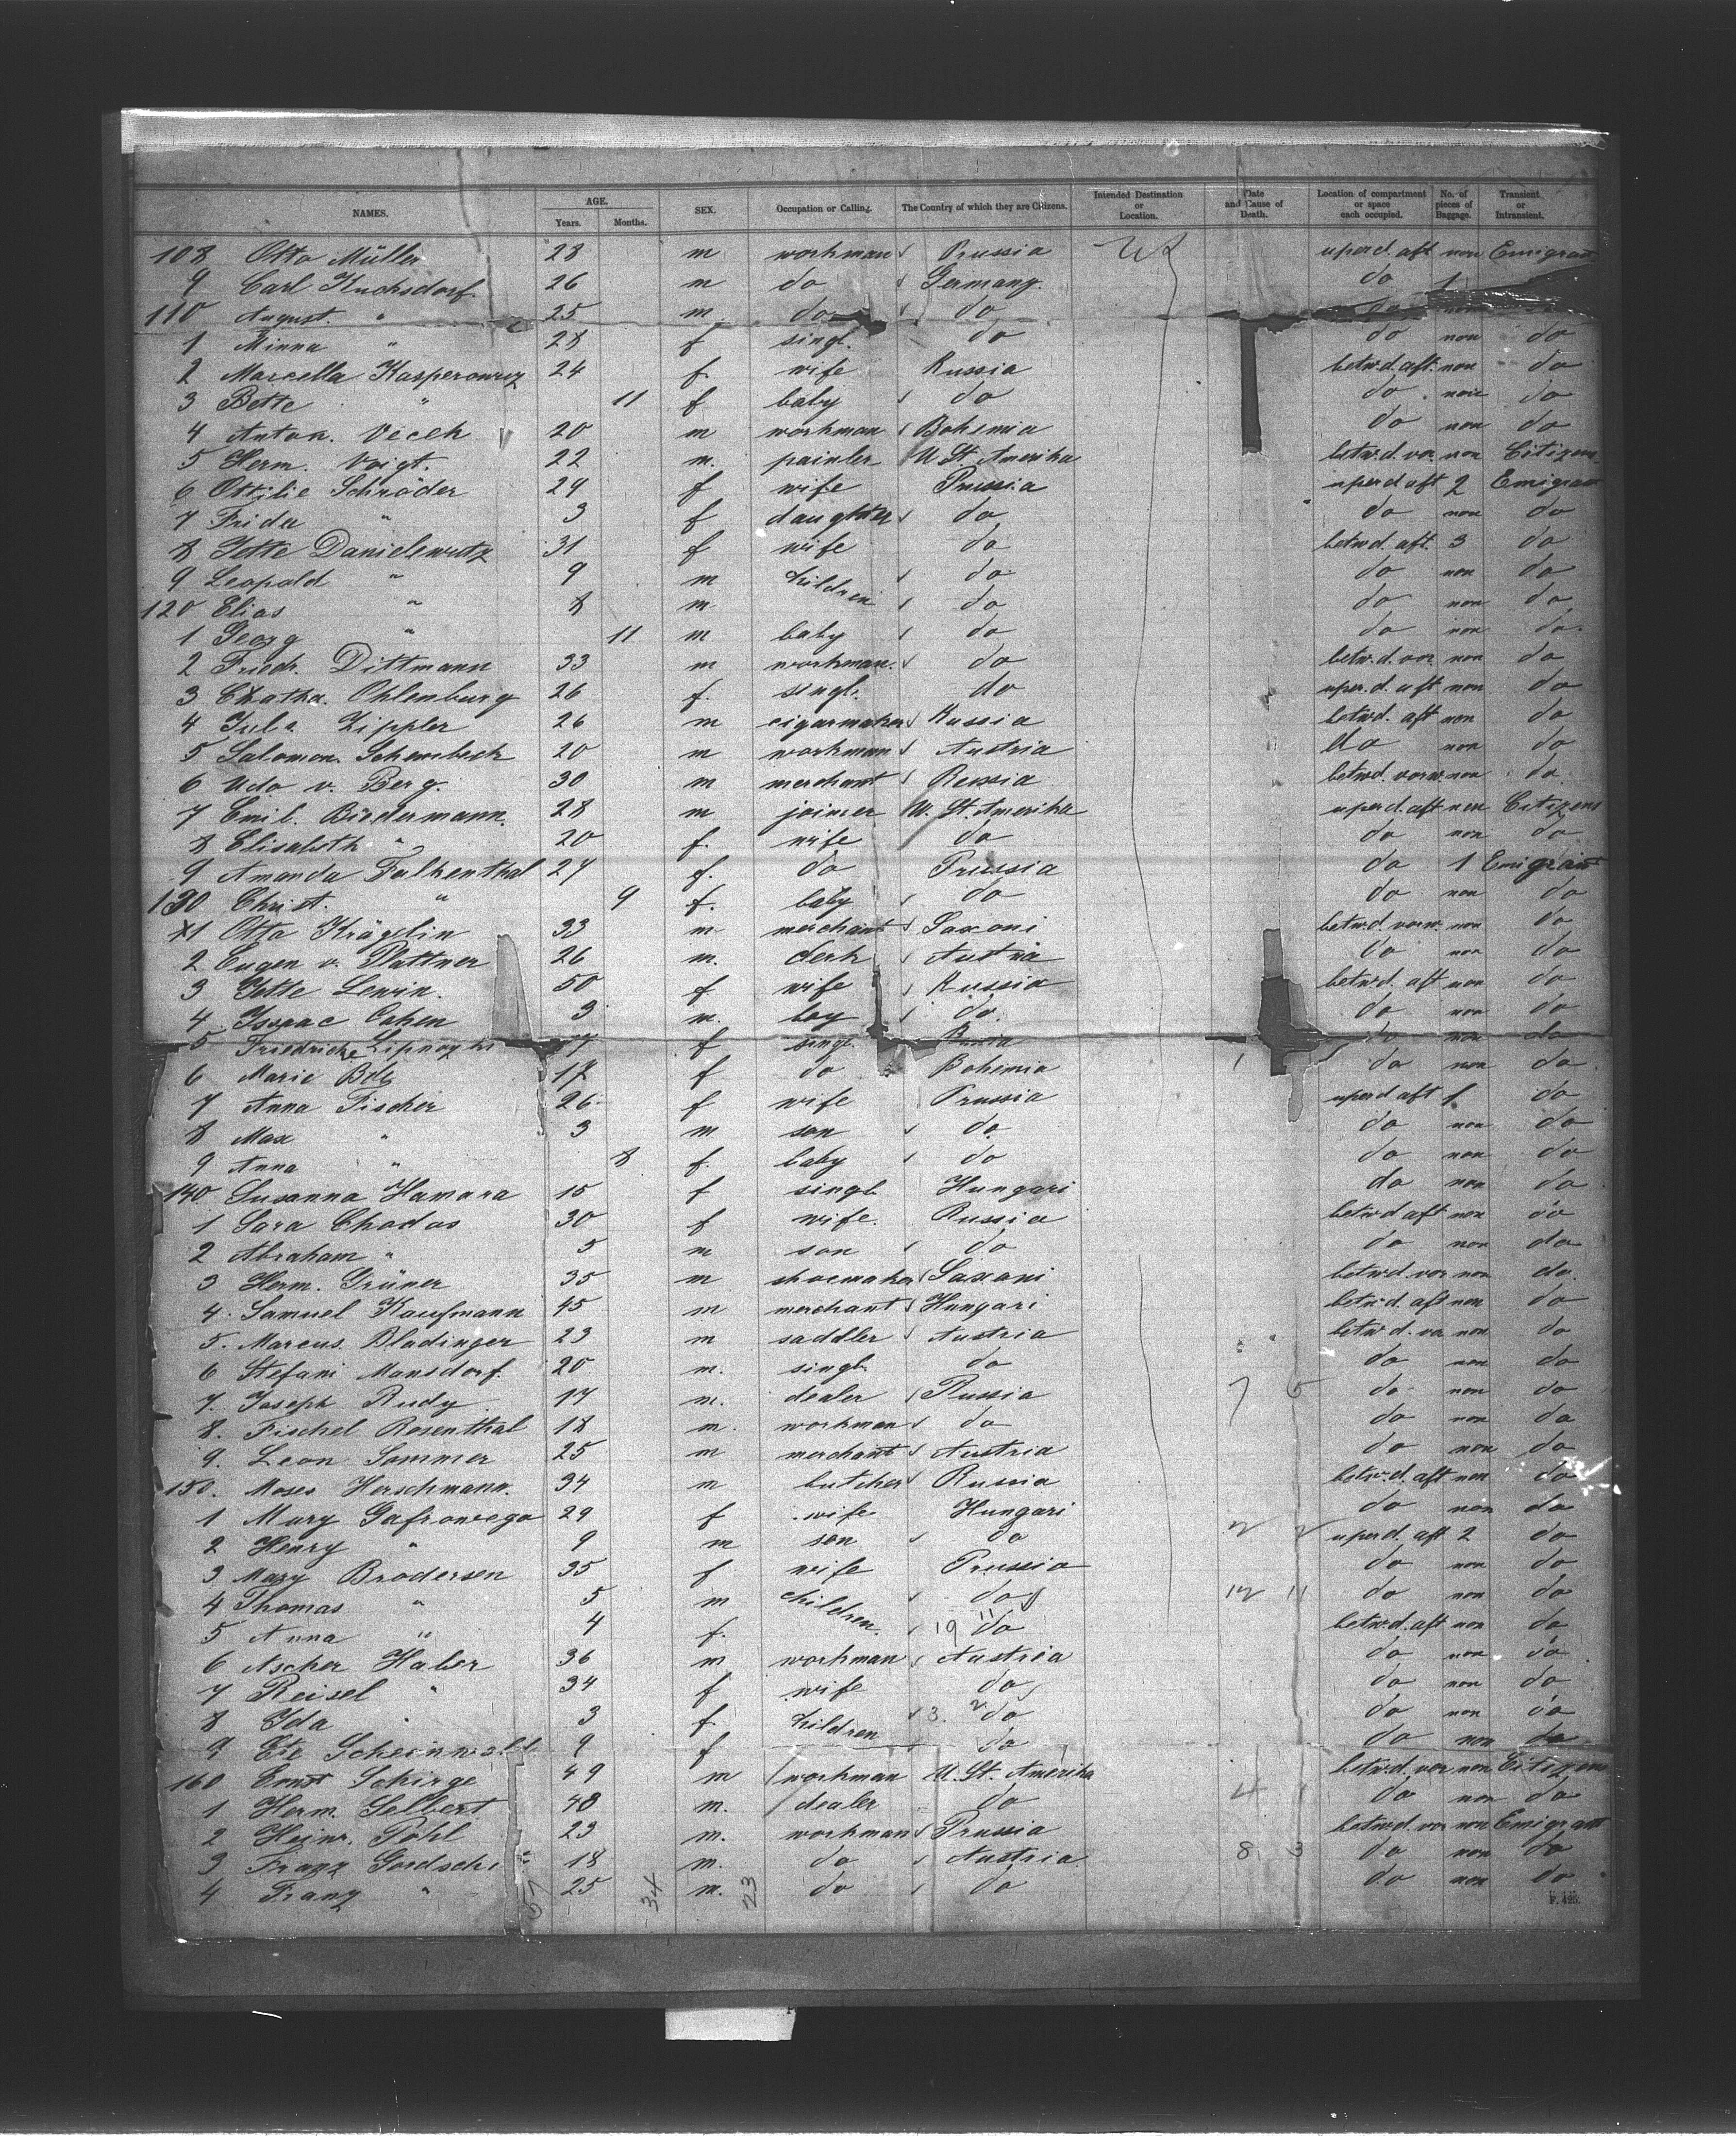 NAMES. AGE. Years. Months. SEX. Occupation or Calling. The Country of which they are Citizens. Intended Destination or Location. Date and Cause of Death. Location of compartment or space each occupied. No. of pieces of Baggage. Transient or Intransient.
108 Otto Müller 28 m workman Prussia uper d. aft non Emigrant
9 Carl 26 m do Germany. do 1
110 August. " 25 m do do do non
1 Minna " 28 f singl. do do non do
2 Marcella Kasperowicz 24 f. wife Russia betw. d. aft. non do
3 Bette " 11 f baby do do non do
4 Anton. Vecek 20 m workman Bohemia do non do
5 Herm. Voigt. 22 m. painter U. St. Amerika betw. d. vor. non Citizens
6 Ottilie Schröder 29 f wife Prussia uper d aft 2 Emigrant
7 Frida " 3 f daughter do do non do
8 Jette Danielewitz 31 f wife do betw d. aft. 3 do
9 Leopold " 9 m children do do non do
120 Elias " 8 m do do non do
1 Georg " 11 m baby do do non do.
2 Friedr. Dittmann 33 m workman. do betw. d. vor. non do
3 Cathar. Ohlenburg 26 f. singl. do uper. d. aft non do
4 Jula Zippler 26 m cigarmaker Russia betw d. aft non do
5 Salomon 20 m workman Austria do non do
6 Udo v. Berg. 30 m merchant Russia betw d. vorw. non do
7 Emil. Biedermann. 28 m joiner U. St. Amerika uper d. aft non Citizens
8 Elisabeth " 20 f. wife do do non do
9 Amanda Falkenthal 27 f. do Prussia do 1 Emigrant
130 Christ. " 9 f. baby do do non do
x1 Otto Krägelin 33 m merchant Saxoni betw. d. vorw. non do
2 Eugen v. Plattner 26 m. clerk Austria do non do
3 Jette Lewin. 50 f wife Russia betw. d. aft non do
4 Isaac Cohen 3 m. boy do. do non do
5 Friedricke f singl. do non do
6 Marie 17 f do Bohemia do non do
7 Anna Fischer 26 f wife Prussia uper d aft 1 do
8 Max " 3 m son do do non do
9 Anna " 8 f. baby do do non do
140 Susanna Hamara 15 f singl Hungari do non do
1 Sara Chodas 30 f wife. Russia betw d aft non do
2 Abraham " 5 m son do do non do
3 Herm. Grüner 35 m shoemaker Saxoni betw d vor non do.
4. Samuel Kaufmann 45 m merchant Hungari betw. d. aft non do
5. Marcus. Bladinger 23 m saddler Austria betw d. vor non do
6 Stefani Mansdorf. 20 m. singl. do do non do
7. Joseph Rudy 17 m. dealer Russia 7 5 do non do
8. Fischel Rosenthal 18 m. workman do do non do
9. Leon Sommer 25 m merchant Austria do non do
150. Moses Herschmann. 34 m butcher Russia betw. d. aft non do
1 Mary 29 f wife Hungari do non do
2 Henry " 9 m son do 2 2 uper d. aft 2 do
3 Mary Brodersen 35 f wife Prussia do non do
4 Thomas " 5 m children. do 12 11 do non do
5 Anna " 4 f. 19 11 do betw. d. aft non do
6 Ascher Haber 36 m workman Austria do non do
7 Reisel " 34 f wife do do non do
8 Ida " 3 f children 3. 2 do do non do
9 Ete 9 f do do non do
160 Ernst Schirge 49 m workman U. St. Amerika betw. d. vor non Citizens
1 Herm. Selbert 48 m. dealer do 4 1 do non do
2 Heinr. Pohl 23 m. workman Prussia betw d vor non Emigrant
3 Franz 18 m. do Austria 8 3 do non do
4 Franz " 25 m. do do do non do
57 34 23